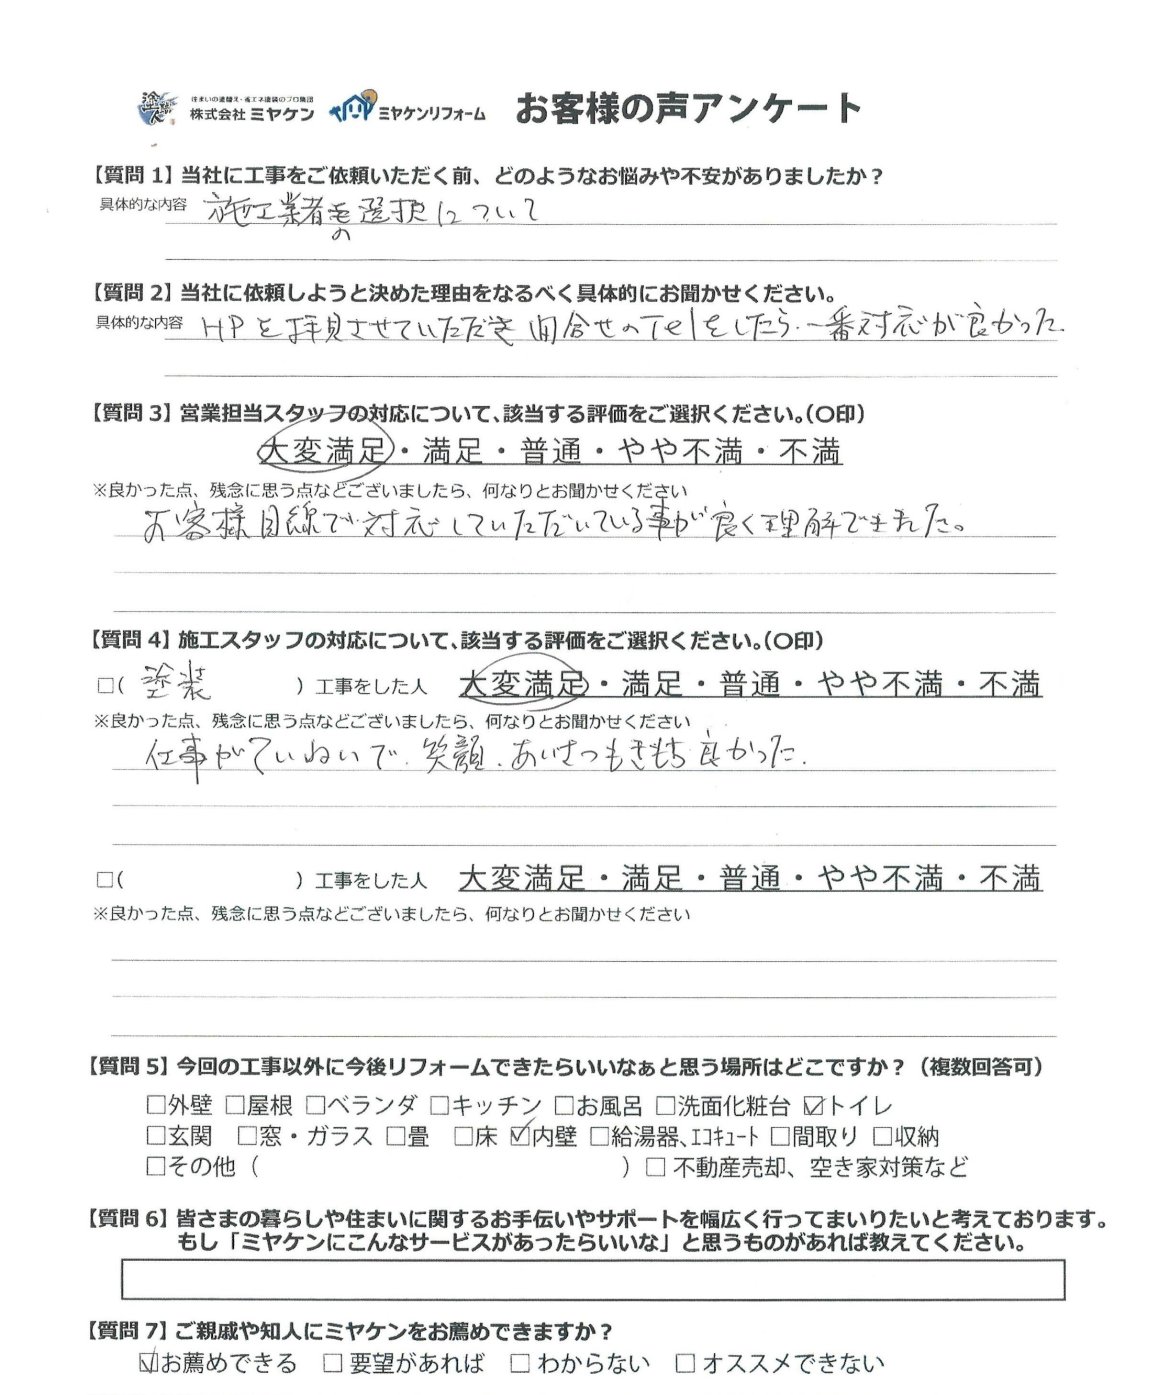 住まいの塗替え・省エネ塗装のプロ集団
株式会社ミヤケン ミヤケンリフォーム お客様の声アンケート
【質問 1】当社に工事をご依頼いただく前、どのようなお悩みや不安がありましたか？
具体的な内容 施工業者の選択について
【質問 2】当社に依頼しようと決めた理由をなるべく具体的にお聞かせください。
具体的な内容 HPを拝見させていただき 問合せのTelをしたら、一番対応が良かった.
【質問 3】営業担当スタッフの対応について、該当する評価をご選択ください。（〇印）
大変満足・満足・普通・やや不満・不満
※良かった点、残念に思う点などございましたら、何なりとお聞かせください
お客様目線で対応していただいている事が良く理解できました。
【質問 4】施工スタッフの対応について、該当する評価をご選択ください。（〇印）
□（ 塗装 ）工事をした人 大変満足・満足・普通・やや不満・不満
※良かった点、残念に思う点などございましたら、何なりとお聞かせください
仕事がていねいで、笑顔、あいさつもきもち良かった.
□（ ）工事をした人 大変満足・満足・普通・やや不満・不満
※良かった点、残念に思う点などございましたら、何なりとお聞かせください
【質問 5】今回の工事以外に今後リフォームできたらいいなぁと思う場所はどこですか？（複数回答可）
□外壁 □屋根 □ベランダ □キッチン □お風呂 □洗面化粧台 ☑トイレ
□玄関 □窓・ガラス □畳 □床 ☑内壁 □給湯器、ｴｺｷｭｰﾄ □間取り □収納
□その他（ ）□ 不動産売却、空き家対策など
【質問 6】皆さまの暮らしや住まいに関するお手伝いやサポートを幅広く行ってまいりたいと考えております。
もし「ミヤケンにこんなサービスがあったらいいな」と思うものがあれば教えてください。
【質問 7】ご親戚や知人にミヤケンをお薦めできますか？
☑お薦めできる □ 要望があれば □ わからない □ オススメできない